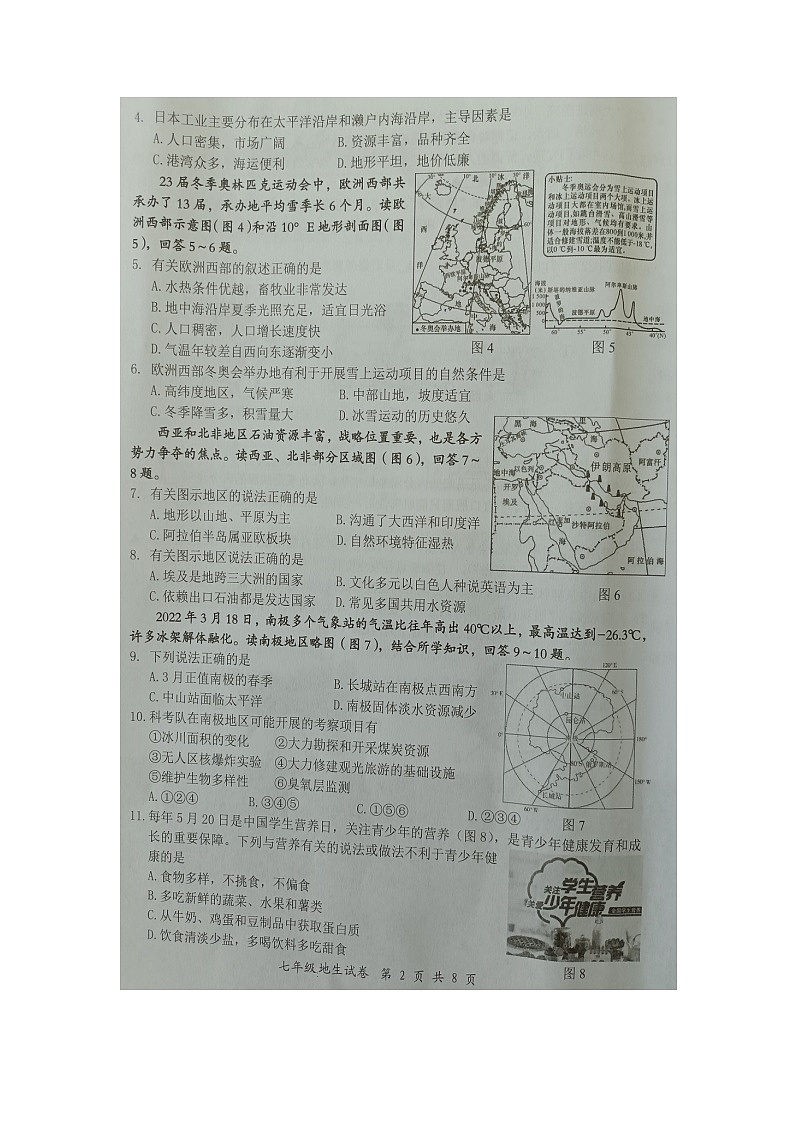 4. 日本工业主要分布在太平洋沿岸和濑户内海沿岸，主导因素是
A.人口密集，市场广阔 B.资源丰富，品种齐全
C.港湾众多，海运便利 D.地形平坦，地价低廉
23届冬季奥林匹克运动会中，欧洲西部共
承办了13届，承办地平均雪季长6个月。读欧
洲西部示意图(图4)和沿10° E地形剖面图(图
5)，回答5～6题。
5. 有关欧洲西部的叙述正确的是
A.水热条件优越，畜牧业非常发达
B.地中海沿岸夏季光照充足，适宜日光浴
C.人口稠密，人口增长速度快
D.气温年较差自西向东逐渐变小
北 冰 洋
大
西
洋
波德平原
阿尔卑斯山脉
地 中 海
•冬奥会举办地
图4
小贴士：
冬季奥运会分为雪上运动项目
和冰上运动项目两个大项。冰上运
动项目大都在室内场馆，而雪上运
动项目，如跳台滑雪、高山滑雪等
项目对地形、气候均有要求。山
体一般海拔落差在800到1000米，并
适合修建雪道；温度不能低于-18℃，
以0℃到-10℃最为适宜。
海拔
(米)
斯堪的纳维亚山脉
阿尔卑斯山脉
1 500
1 000
500
0
波德平原
地中海
60° 55° 50° 45° 40°(N)
图5
6. 欧洲西部冬奥会举办地有利于开展雪上运动项目的自然条件是
A.高纬度地区，气候严寒 B.中部山地，坡度适宜
C.冬季降雪多，积雪量大 D.冰雪运动的历史悠久
西亚和北非地区石油资源丰富，战略位置重要，也是各方
势力争夺的焦点。读西亚、北非部分区域图(图6)，回答7～
8题。
7. 有关图示地区的说法正确的是
A.地形以山地、平原为主 B.沟通了大西洋和印度洋
C.阿拉伯半岛属亚欧板块 D.自然环境特征湿热
8. 有关图示地区说法正确的是
A.埃及是地跨三大洲的国家 B.文化多元以白色人种说英语为主
C.依赖出口石油都是发达国家 D.常见多国共用水资源
黑 海
海
地中海
以色列
伊朗高原
阿富汗
开罗
埃及
沙特阿拉伯
海
阿拉伯海
图6
2022年3月18日，南极多个气象站的气温比往年高出40℃以上，最高温达到-26.3℃，
许多冰架解体融化。读南极地区略图(图7)，结合所学知识，回答9～10题。
9. 下列说法正确的是
A.3月正值南极的春季 B.长城站在南极点西南方
C.中山站面临太平洋 D.南极固体淡水资源减少
10.科考队在南极地区可能开展的考察项目有
①冰川面积的变化 ②大力勘探和开采煤炭资源
③无人区核爆炸实验 ④大力修建观光旅游的基础设施
⑤维护生物多样性 ⑥臭氧层监测
A.①②④ B.③④⑤ C.①⑤⑥ D.②③④
120°E
中山站
昆仑站
0°
180°
罗斯海站
150°W
长城站
60°W
图7
11.每年5月20日是中国学生营养日，关注青少年的营养(图8)，是青少年健康发育和成
长的重要保障。下列与营养有关的说法或做法不利于青少年健
康的是
A.食物多样，不挑食，不偏食
B.多吃新鲜的蔬菜、水果和薯类
C.从牛奶、鸡蛋和豆制品中获取蛋白质
D.饮食清淡少盐，多喝饮料多吃甜食
关注
学生营养
关爱
少年健康
图8
七年级地生试卷 第 2 页 共 8 页